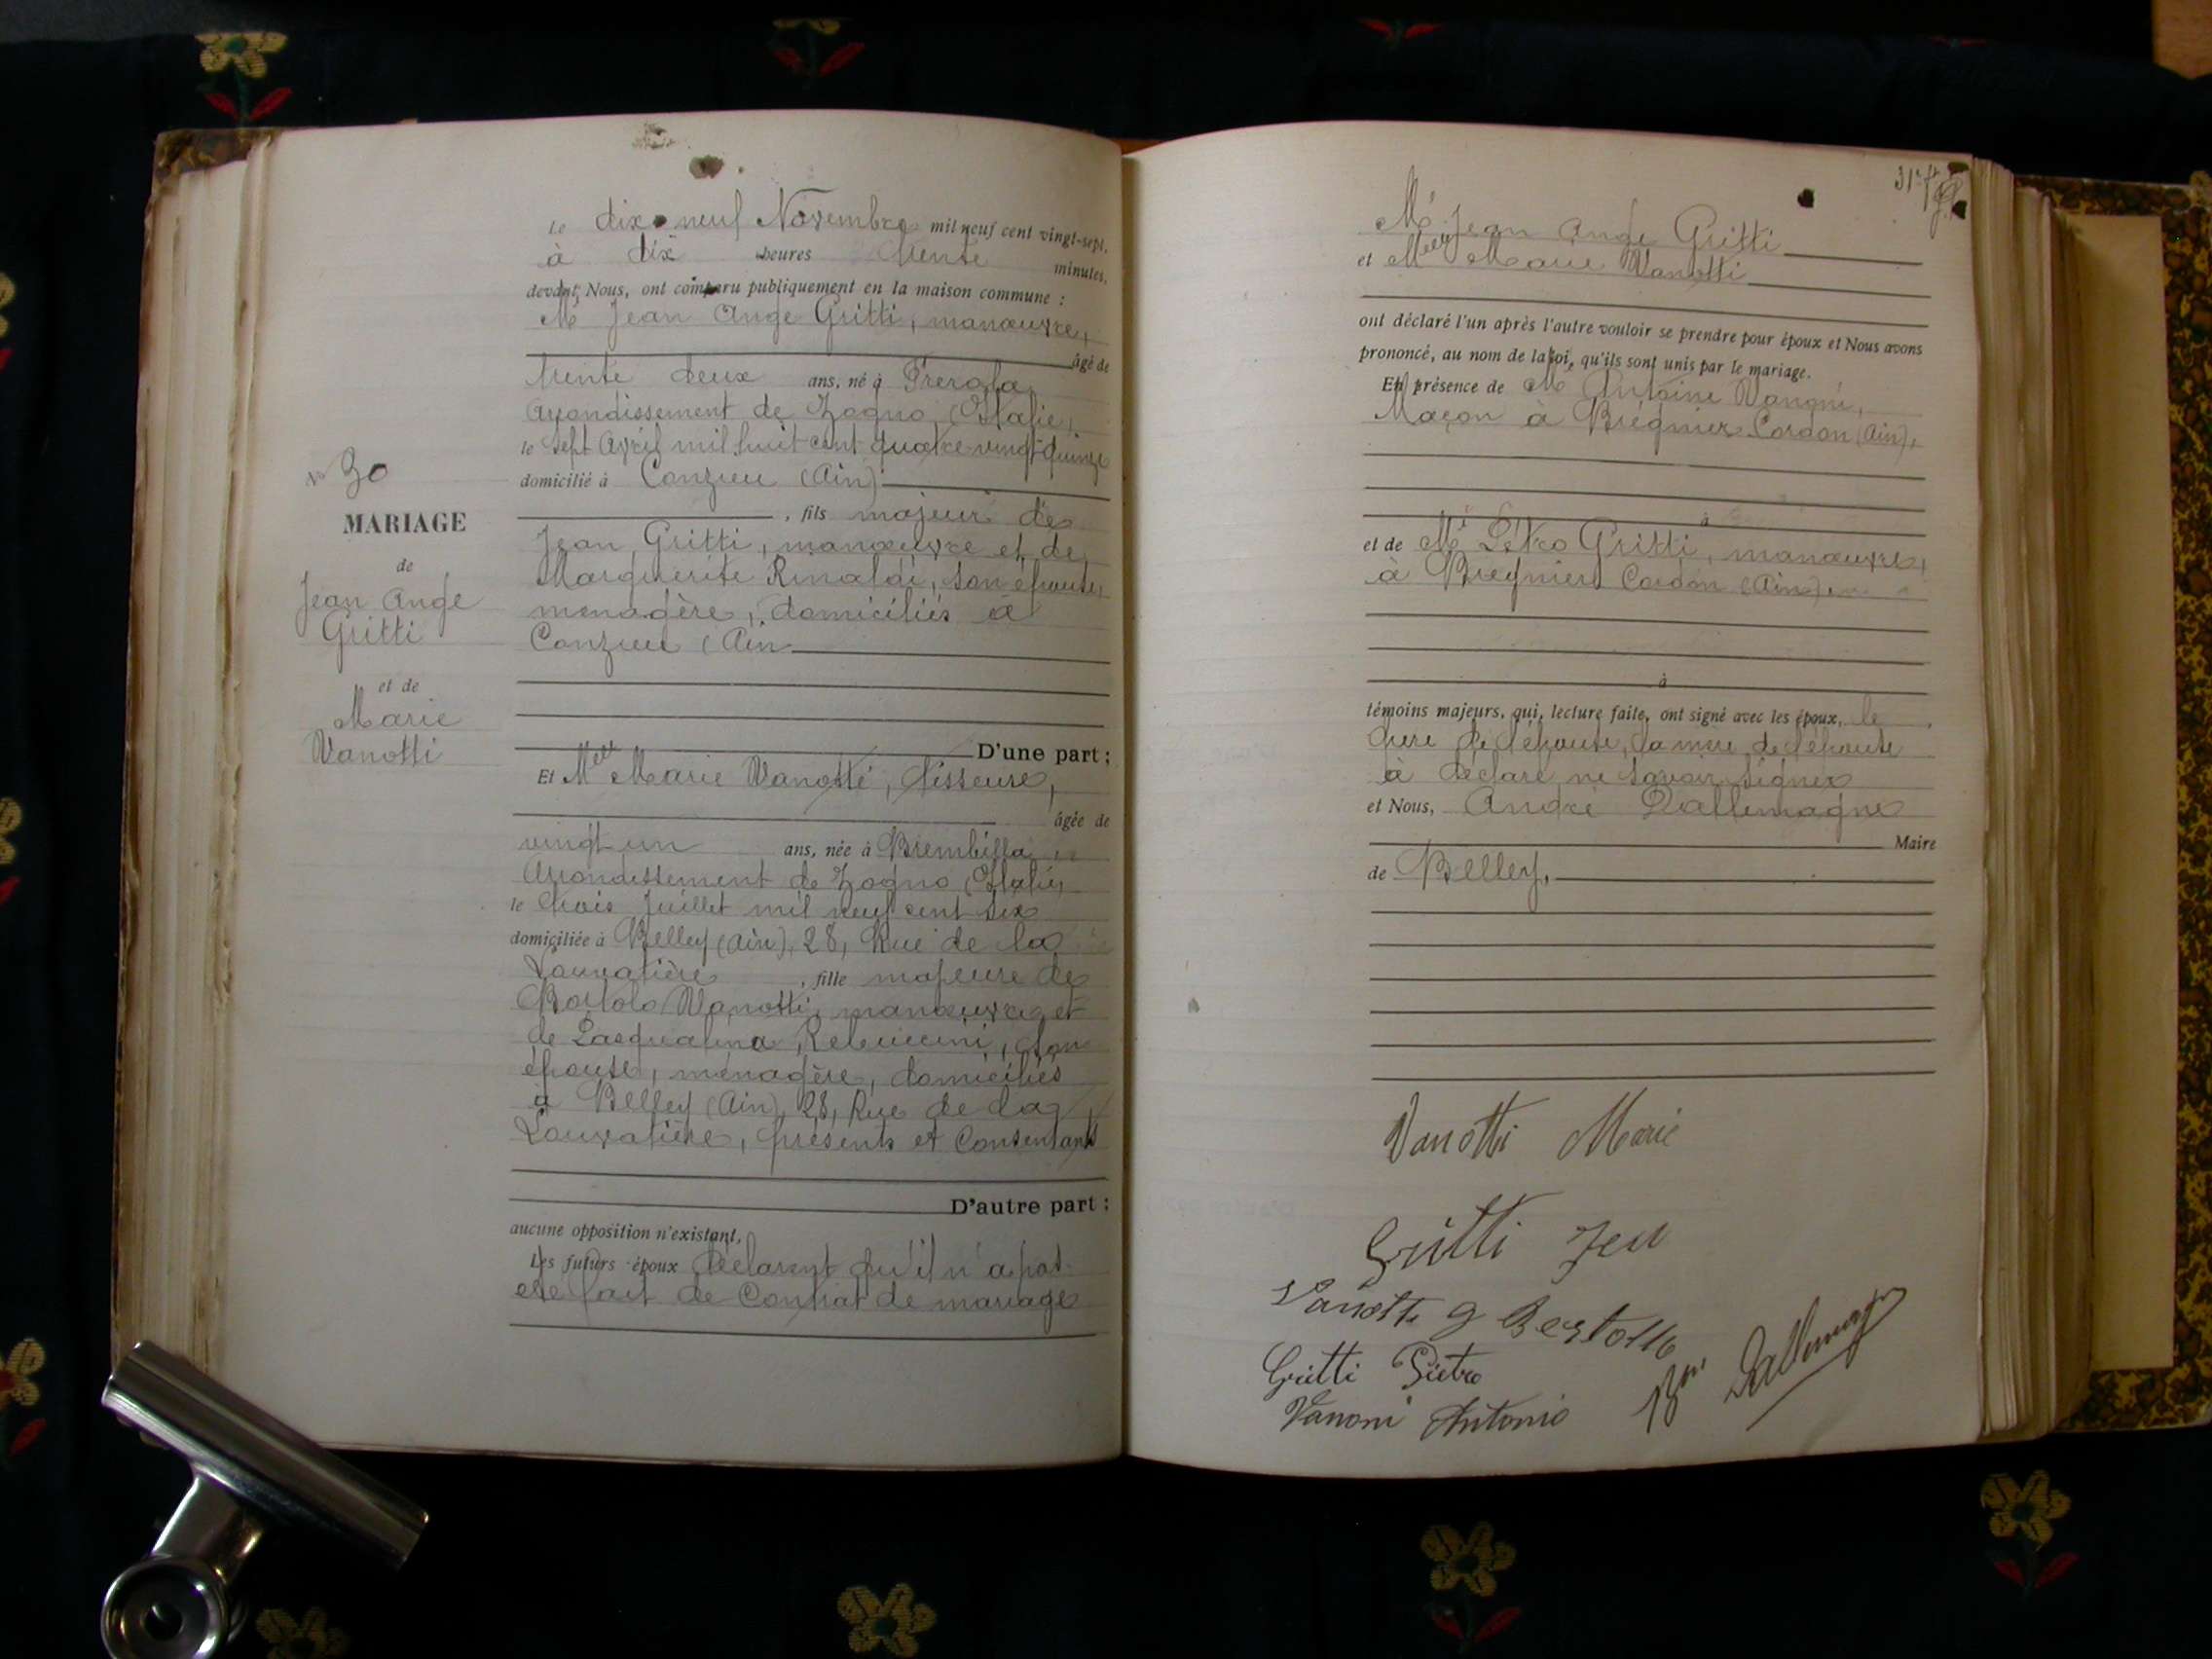 N° 30
MARIAGE
de
Jean Ange
Gritti
et de
Marie
Vanotti
Le dix neuf Novembre mil neuf cent vingt-sept.
à dix heures trente minutes,
devant Nous, ont comparu publiquement en la maison commune :
Mr Jean Ange Gritti, manœuvre,
âgé de
trente deux ans, né à
Arrondissement de Zogno (Italie,
le sept Avril mil huit cent quatre vingt quinze
domicilié à Conzieu (Ain)
, fils majeur de
Jean Gritti, manœuvre et de
Marguerite Rinaldi, son épouse,
menagère, domiciliés à
Conzieu (Ain
D'une part ;
Et Melle Marie Vanotti, tisseuse,
âgée de
vingt un ans, née à Brembilla
Arrondissement de Zogno (Italie,
le trois Juillet mil neuf cent six
domiciliée à Belley (Ain), 28, Rue de la
, fille majeure de
Bortolo Vanotti, manœuvre et
de Pasqualina, son
épouse, ménagère, domiciliés
à Belley (Ain), 28, Rue de la
présents et Consentants
D'autre part ;
aucune opposition n'existant,
Les futurs époux déclarent qu'il n'a pas
été fait de Contrat de mariage
31e ft
Mr Jean Ange Gritti
et Melle Marie Vanotti
ont déclaré l'un après l'autre vouloir se prendre pour époux et Nous avons
prononcé, au nom de la loi, qu'ils sont unis par le mariage.
En présence de Mr Antoine Vanoni,
Maçon à Brégnier Cordon (Ain),
à
et de Mr Pétro Gritti, manœuvre,
à Bregnier Cordon (Ain),
à
témoins majeurs, qui, lecture faite, ont signé avec les époux, le
père de l'épouse, la mère de l'épouse
à déclaré ne savoir signer
et Nous, André Dallemagne
Maire
de Belley,
Vanotti Marie
Gritti
Vanotti
Gritti Pietro
Vanoni Antonio
Dallemagne